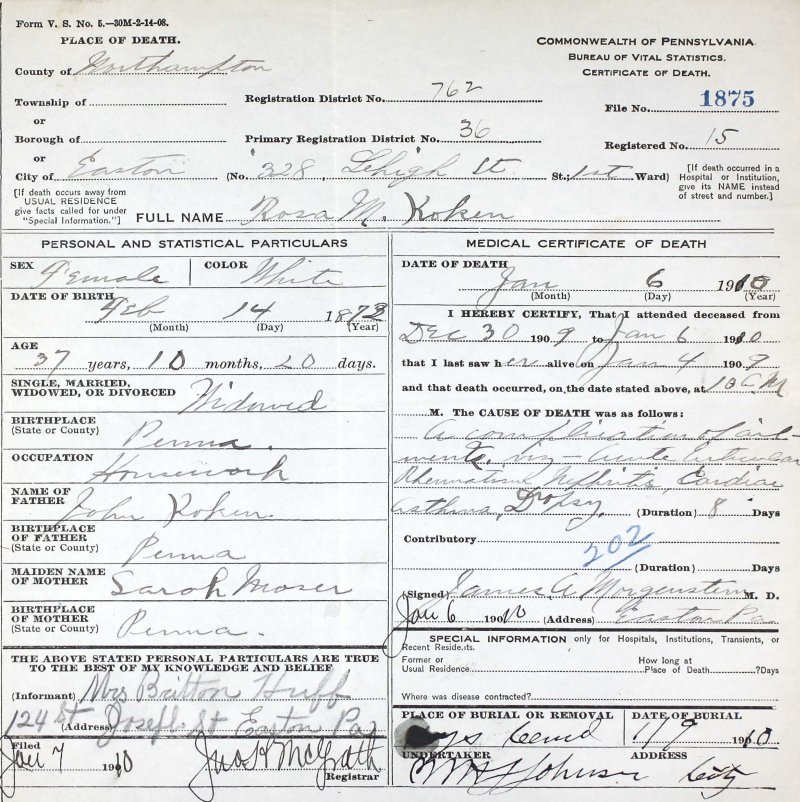 Form V. S. No. 5.—30M-2-14-08.
PLACE OF DEATH.
County of Northampton
Township of
or
Borough of
or
City of Easton
COMMONWEALTH OF PENNSYLVANIA
BUREAU OF VITAL STATISTICS.
CERTIFICATE OF DEATH.
Registration District No. 762
File No. 1875
Primary Registration District No. 36
Registered No. 15
(No. 328, Lehigh St St.; 1st Ward)
[If death occurred in a
Hospital or Institution,
give its NAME instead
of street and number.]
[If death occurs away from
USUAL RESIDENCE
give facts called for under
"Special Information."]
FULL NAME Rosa M. Koken
PERSONAL AND STATISTICAL PARTICULARS
SEX Female
COLOR White
DATE OF BIRTH
Feb 14 1873
(Month) (Day) (Year)
AGE
37 years, 10 months, 20 days.
SINGLE, MARRIED,
WIDOWED, OR DIVORCED Widowed
BIRTHPLACE
(State or County) Penna.
OCCUPATION
Housework
NAME OF
FATHER John Koken
BIRTHPLACE
OF FATHER
(State or County) Penna
MAIDEN NAME
OF MOTHER Sarah Moser
BIRTHPLACE
OF MOTHER
(State or County) Penna.
THE ABOVE STATED PERSONAL PARTICULARS ARE TRUE
TO THE BEST OF MY KNOWLEDGE AND BELIEF.
(Informant) Mrs Britton Huff
(Address) 124 St Joseph St Easton, Pa
Filed
Jan 7 1910 Jno H McGrath
Registrar
MEDICAL CERTIFICATE OF DEATH
DATE OF DEATH
Jan 6 1910
(Month) (Day) (Year)
I HEREBY CERTIFY, That I attended deceased from
Dec 30 1909 to Jan 6 1910
that I last saw her alive on Jan 4 1909
and that death occurred, on the date stated above, at 10 M
M. The CAUSE OF DEATH was as follows:
A complication of ail-
ments, viz - acute articular
Rheumatism, Nephritis, Cardiac
asthma, Dropsy, (Duration) 8 Days
Contributory
202
(Duration) Days
(Signed) James A Morgenstern M. D.
Jan 6 1910 (Address) Easton Pa
SPECIAL INFORMATION only for Hospitals, Institutions, Transients, or
Recent Residents.
Former or
Usual Residence
How long at
Place of Death ? Days
Where was disease contracted?
PLACE OF BURIAL OR REMOVAL
DATE OF BURIAL
1/9 1910
UNDERTAKER
ADDRESS
Johnson City